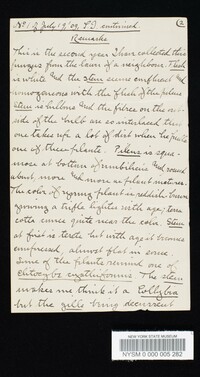 No 1 & July 19/09 continued. (2
Remarks
This is the second year I have collected this
fungus from the lawn of a neighbour. Flesh
is white and the stem seems confluent and
homogeneous with the flesh of the pileus
Stem is bulbous and the fibres on the out-
side of the bulb are so interlaced that
one takes up a lot of dirt when he pulls
one of these plants. Pileus is squa-
mose at bottom of umbilicus and round
about, more and more as plant matures.
The color of young plant is reddish brown
growing a trifle lighter with age; terra
cotta comes quite near the color. Stem
at first is terete but with age it becomes
compressed, almost flat in some.
Some of the plants remind one of
clitocybe cyathiformis. The stem
makes me think it a Collybia
but the gills being decurrent
NEW YORK STATE MUSEUM
NYSM 0 000 005 282